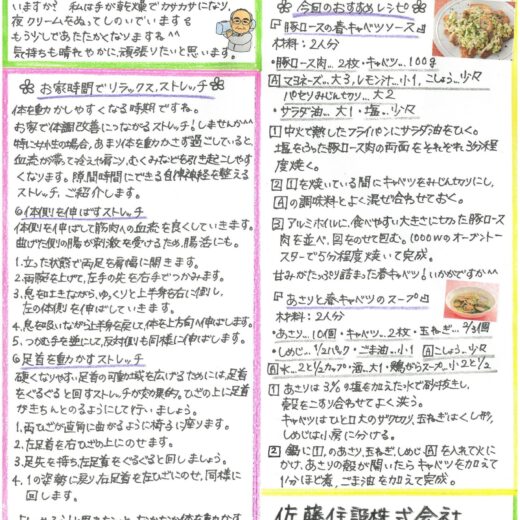 いますか？ 私は手が乾燥でカサカサになり、
夜クリームをぬってしのいでいます
もう少しであたたかくなりますね^^
気持ちも晴れやかに頑張りたいと思います。
お家時間でリラックス、ストレッチ
体を動かしやすくなる時期ですね。
お家で体調改善につながるストレッチ！しませんか^^
特に女性の場合、あまり体を動かさず過ごしていると、
血流が滞って冷えや肩こり、むくみなどを引き起こしやす
くなります。隙間時間にできる自律神経を整える
ストレッチ、ご紹介します。
◎体側を伸ばすストレッチ
体側を伸ばして筋肉への血流を良くしていきます。
曲げた側の腸が刺激を受けるため、腸活にも。
1. 立った状態で両足を肩幅に開きます。
2. 両腕を上げて、左手の先を右手でつかみます。
3. 息を吐きながら、ゆっくりと上半身を右に倒し、
左の体側を伸ばしていきます。
4. 息を吸いながら上半身を戻して、体を上方向へ伸ばします。
5. つかむ手を逆にして、反対側も同様に伸ばします。
◎足首を動かすストレッチ
硬くなりやすい足首の可動域を広げるためには、足首
をぐるぐると回すストレッチが効果的。ひざの上に足首
がきちんとのるようにして行いましょう。
1. 両ひざが直角に曲がるように椅子に座ります。
2. 左足首を右ひざの上にのせます。
3. 足先を持ち、左足首をぐるぐると回しましょう。
4. 1の姿勢に戻り、右足首を左ひざにのせ、同様に
回します。
今回のおすすめレシピ◎
『豚ロースの春キャベツソース』
材料：2人分
・豚ロース肉…2枚・キャベツ…100g
Aマヨネーズ…大3、レモン汁…小1、こしょう…少々
パセリみじん切り…大2
・サラダ油…大1・塩…少々
1 中火で熱したフライパンにサラダ油をひく。
塩をふった豚ロース肉の両面をそれぞれ3分程
度焼く。
2 1を焼いている間にキャベツをみじん切りにし、
Aの調味料とよく混ぜ合わせておく。
3 アルミホイルに、食べやすい大きさに切った豚ロース
肉を並べ、2をのせて包む。1000wのオーブントー
スターで5分程度焼いて完成。
甘みがたっぷり詰まった春キャベツ！いかがですか^^
『あさりと春キャベツのスープ』
材料：2人分
・あさり…10個・キャベツ…2枚・玉ねぎ…2/3個
・しめじ…1/2パック・ごま油…小1 Aこしょう…少々
A水…2と1/2カップ・酒…大1・鶏がらスープ…小2と1/2
1 あさりは3%の塩を加えた水で砂抜きし、
殻をこすり合わせてよく洗う。
キャベツはひと口大のザク切り、玉ねぎはくし形、
しめじは小房に分ける。
2 鍋に1のあさり、玉ねぎ、しめじ、Aを入れて火に
かけ、あさりの殻が開いたらキャベツを加えて
1分ほど煮、ごま油を加えて完成。
佐藤住設株式会社